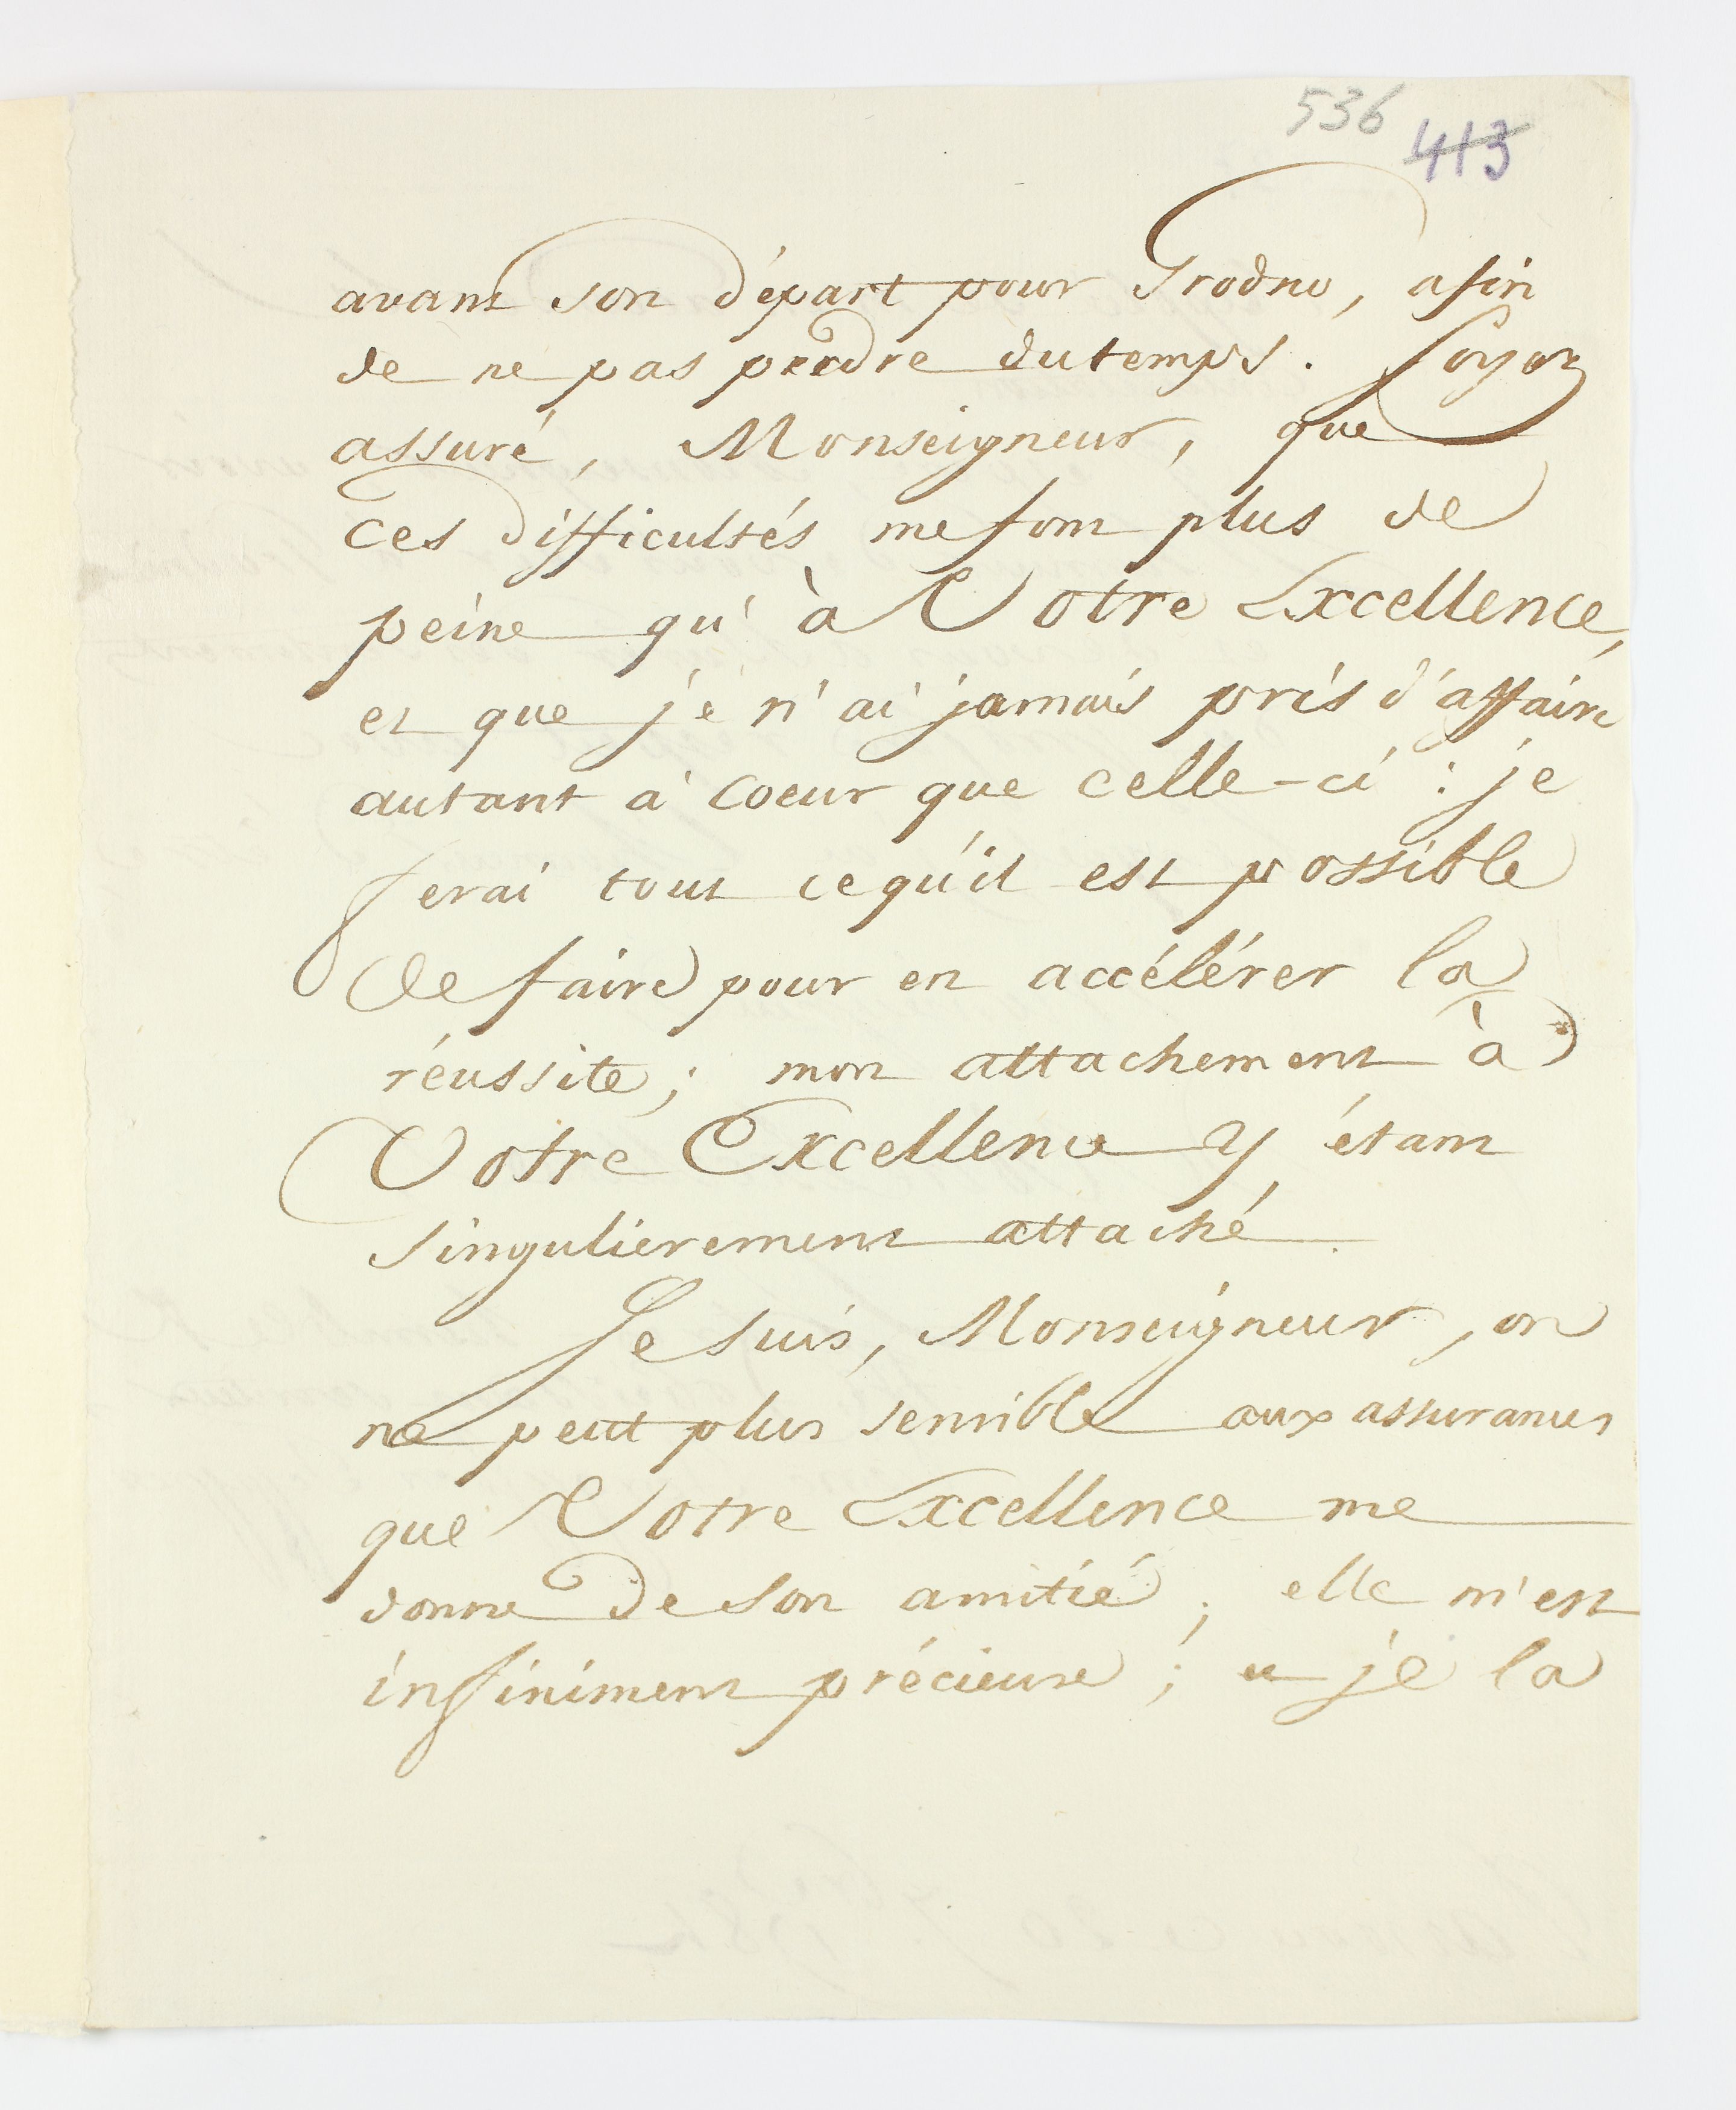 536
413
avant son départ pour Grodno, afin
de ne pas perdre du temps. Soyez
assuré, Monseigneur, que
ces difficultés me font plus de
peine qu'à Votre Excellence,
et que je n'ai jamais pris d'affaire
autant à coeur que celle-ci : je
ferai tout ce qu'il est possible
de faire pour en accélérer la
réussite; mon attachement à
Votre Excellence y étant
singulierement attaché.
Je suis, Monseigneur, on
ne peut plus sensible aux assurances
que Votre Excellence me
donne de son amitié; elle m'est
infiniment précieuse; et je la